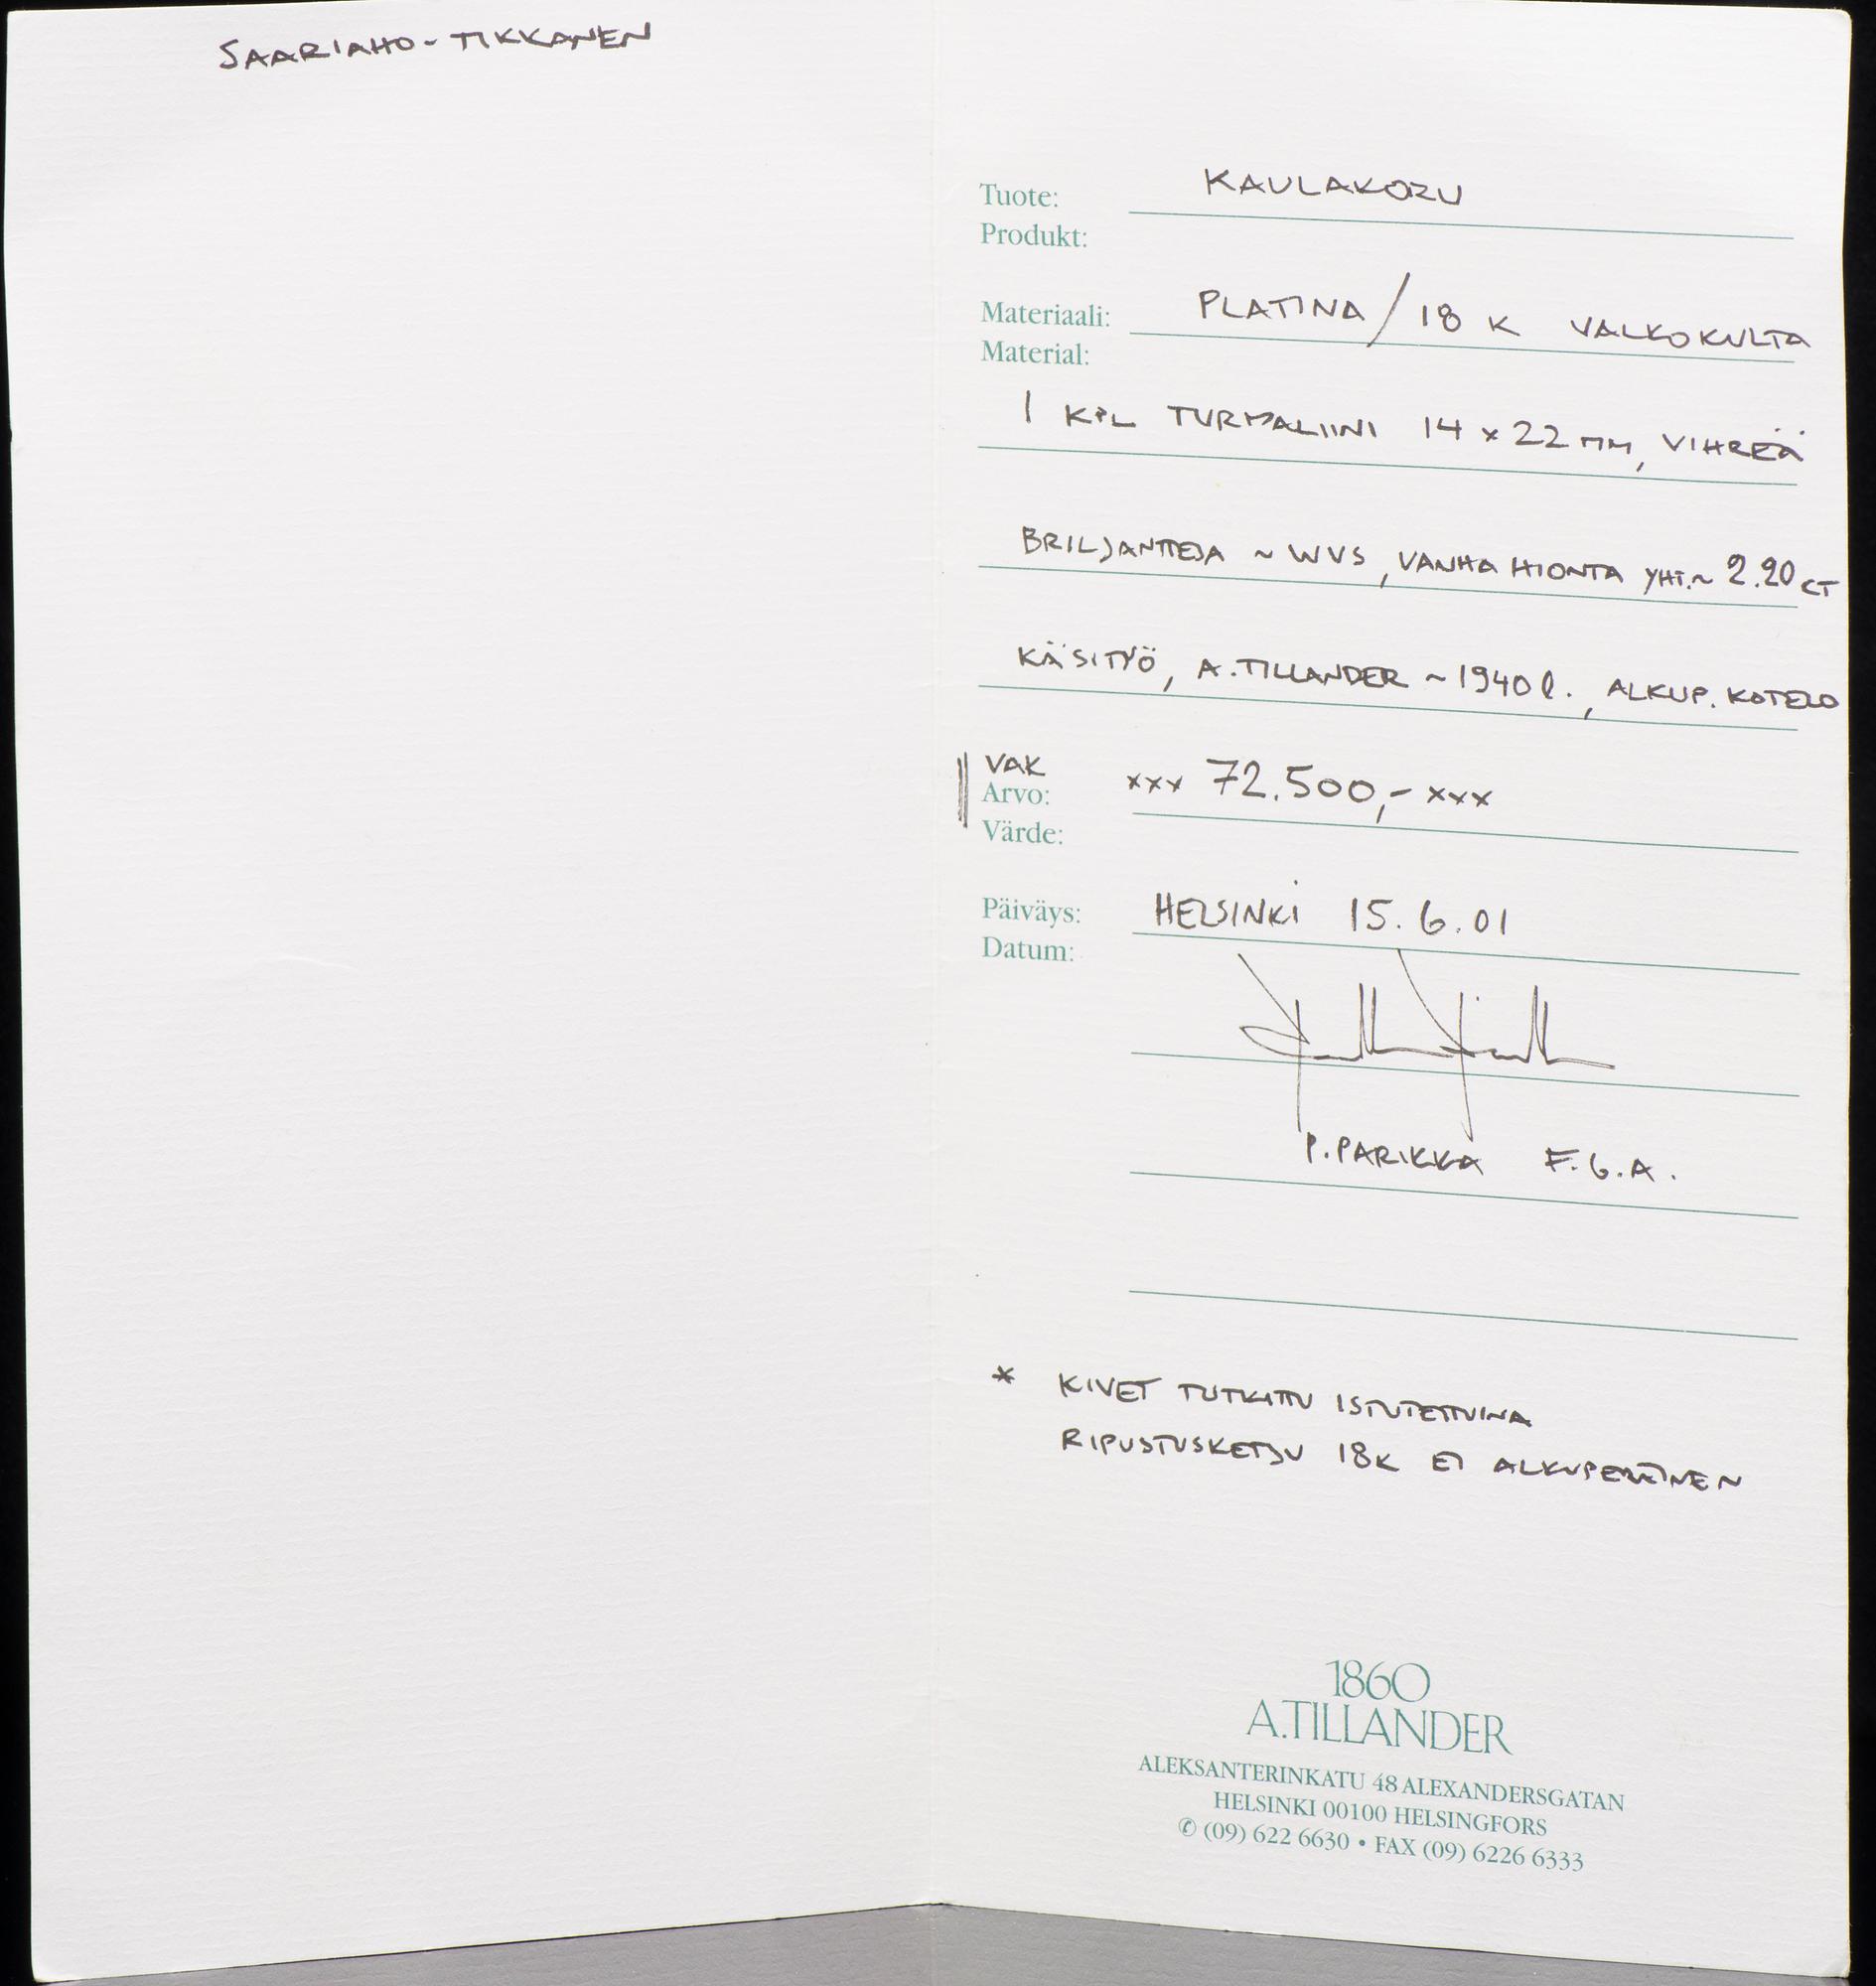 SAARIAHO-TIKKANEN
Tuote: KAULAKORU
Produkt:
Materiaali: PLATINA / 18 K VALKOKULTA
Material:
1 KPL TURMALIINI 14 x 22 MM, VIHREÄ
BRILJANTTEJA ~ WVS, VANHA HIONTA YHT. ~ 2.20 CT
KÄSITYÖ, A.TILLANDER ~ 1940 l., ALKUP. KOTELO
VAK
Arvo: xxx 72.500,- xxx
Värde:
Päiväys: HELSINKI 15.6.01
Datum:
P. PARIKKA F.G.A.
* KIVET TUTKITTU ISTUTETTUINA
RIPUSTUSKETJU 18K EI ALKUPERÄINEN
1860
A.TILLANDER
ALEKSANTERINKATU 48 ALEXANDERSGATAN
HELSINKI 00100 HELSINGFORS
✆ (09) 622 6630 • FAX (09) 6226 6333